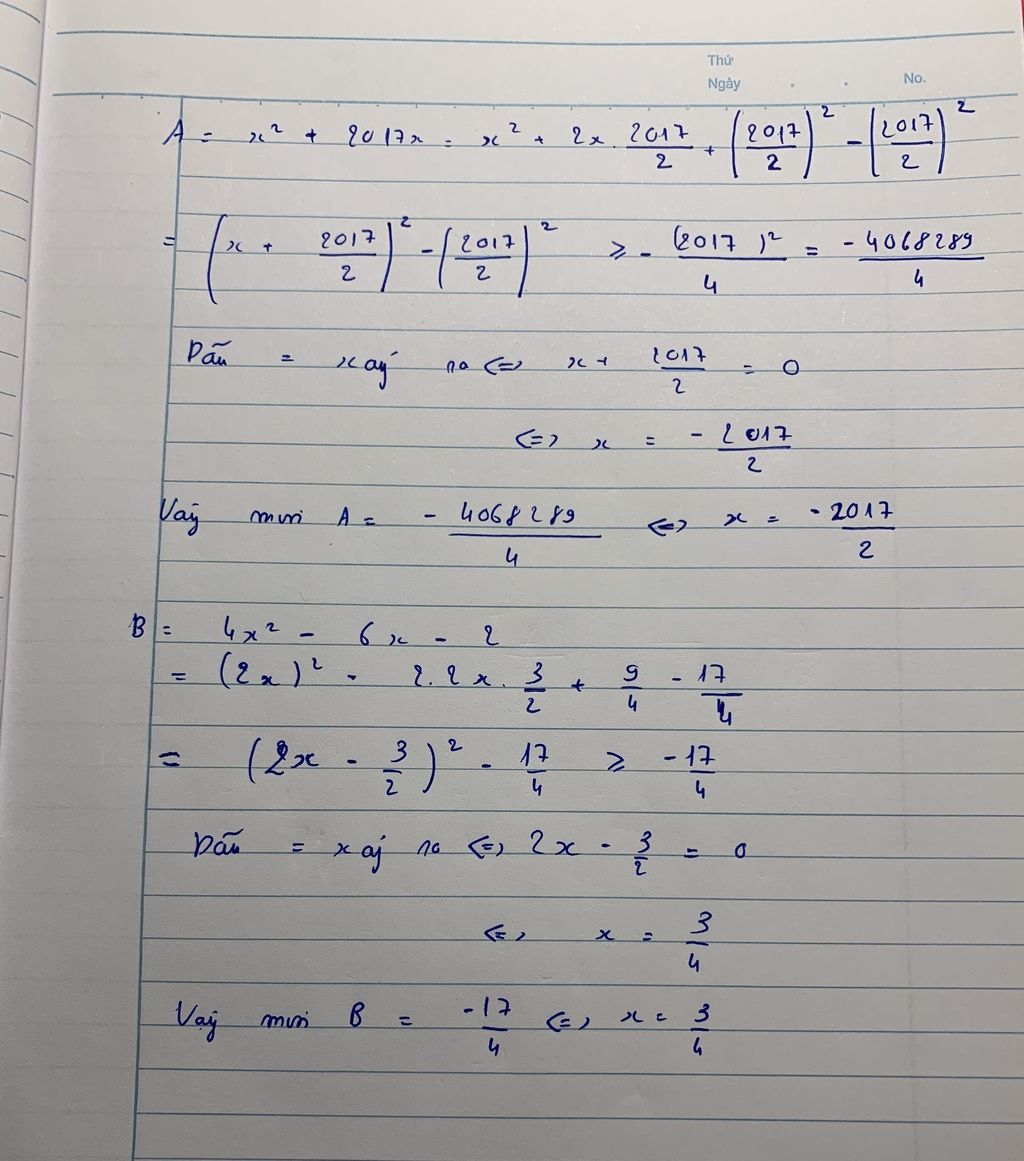 Thứ
Ngày . . No.
A = x² + 2017x = x² + 2x. 2017/2 + (2017/2)² - (2017/2)²
= (x + 2017/2)² - (2017/2)² ≥ - (2017)²/4 = -4068289/4
Dấu = xảy ra <=> x + 2017/2 = 0
<=> x = - 2017/2
Vậy min A = - 4068289/4 <=> x = -2017/2
B = 4x² - 6x - 2
= (2x)² - 2.2x. 3/2 + 9/4 - 17/4
= (2x - 3/2)² - 17/4 ≥ -17/4
Dấu = xảy ra <=> 2x - 3/2 = 0
<=> x = 3/4
Vậy min B = -17/4 <=> x = 3/4